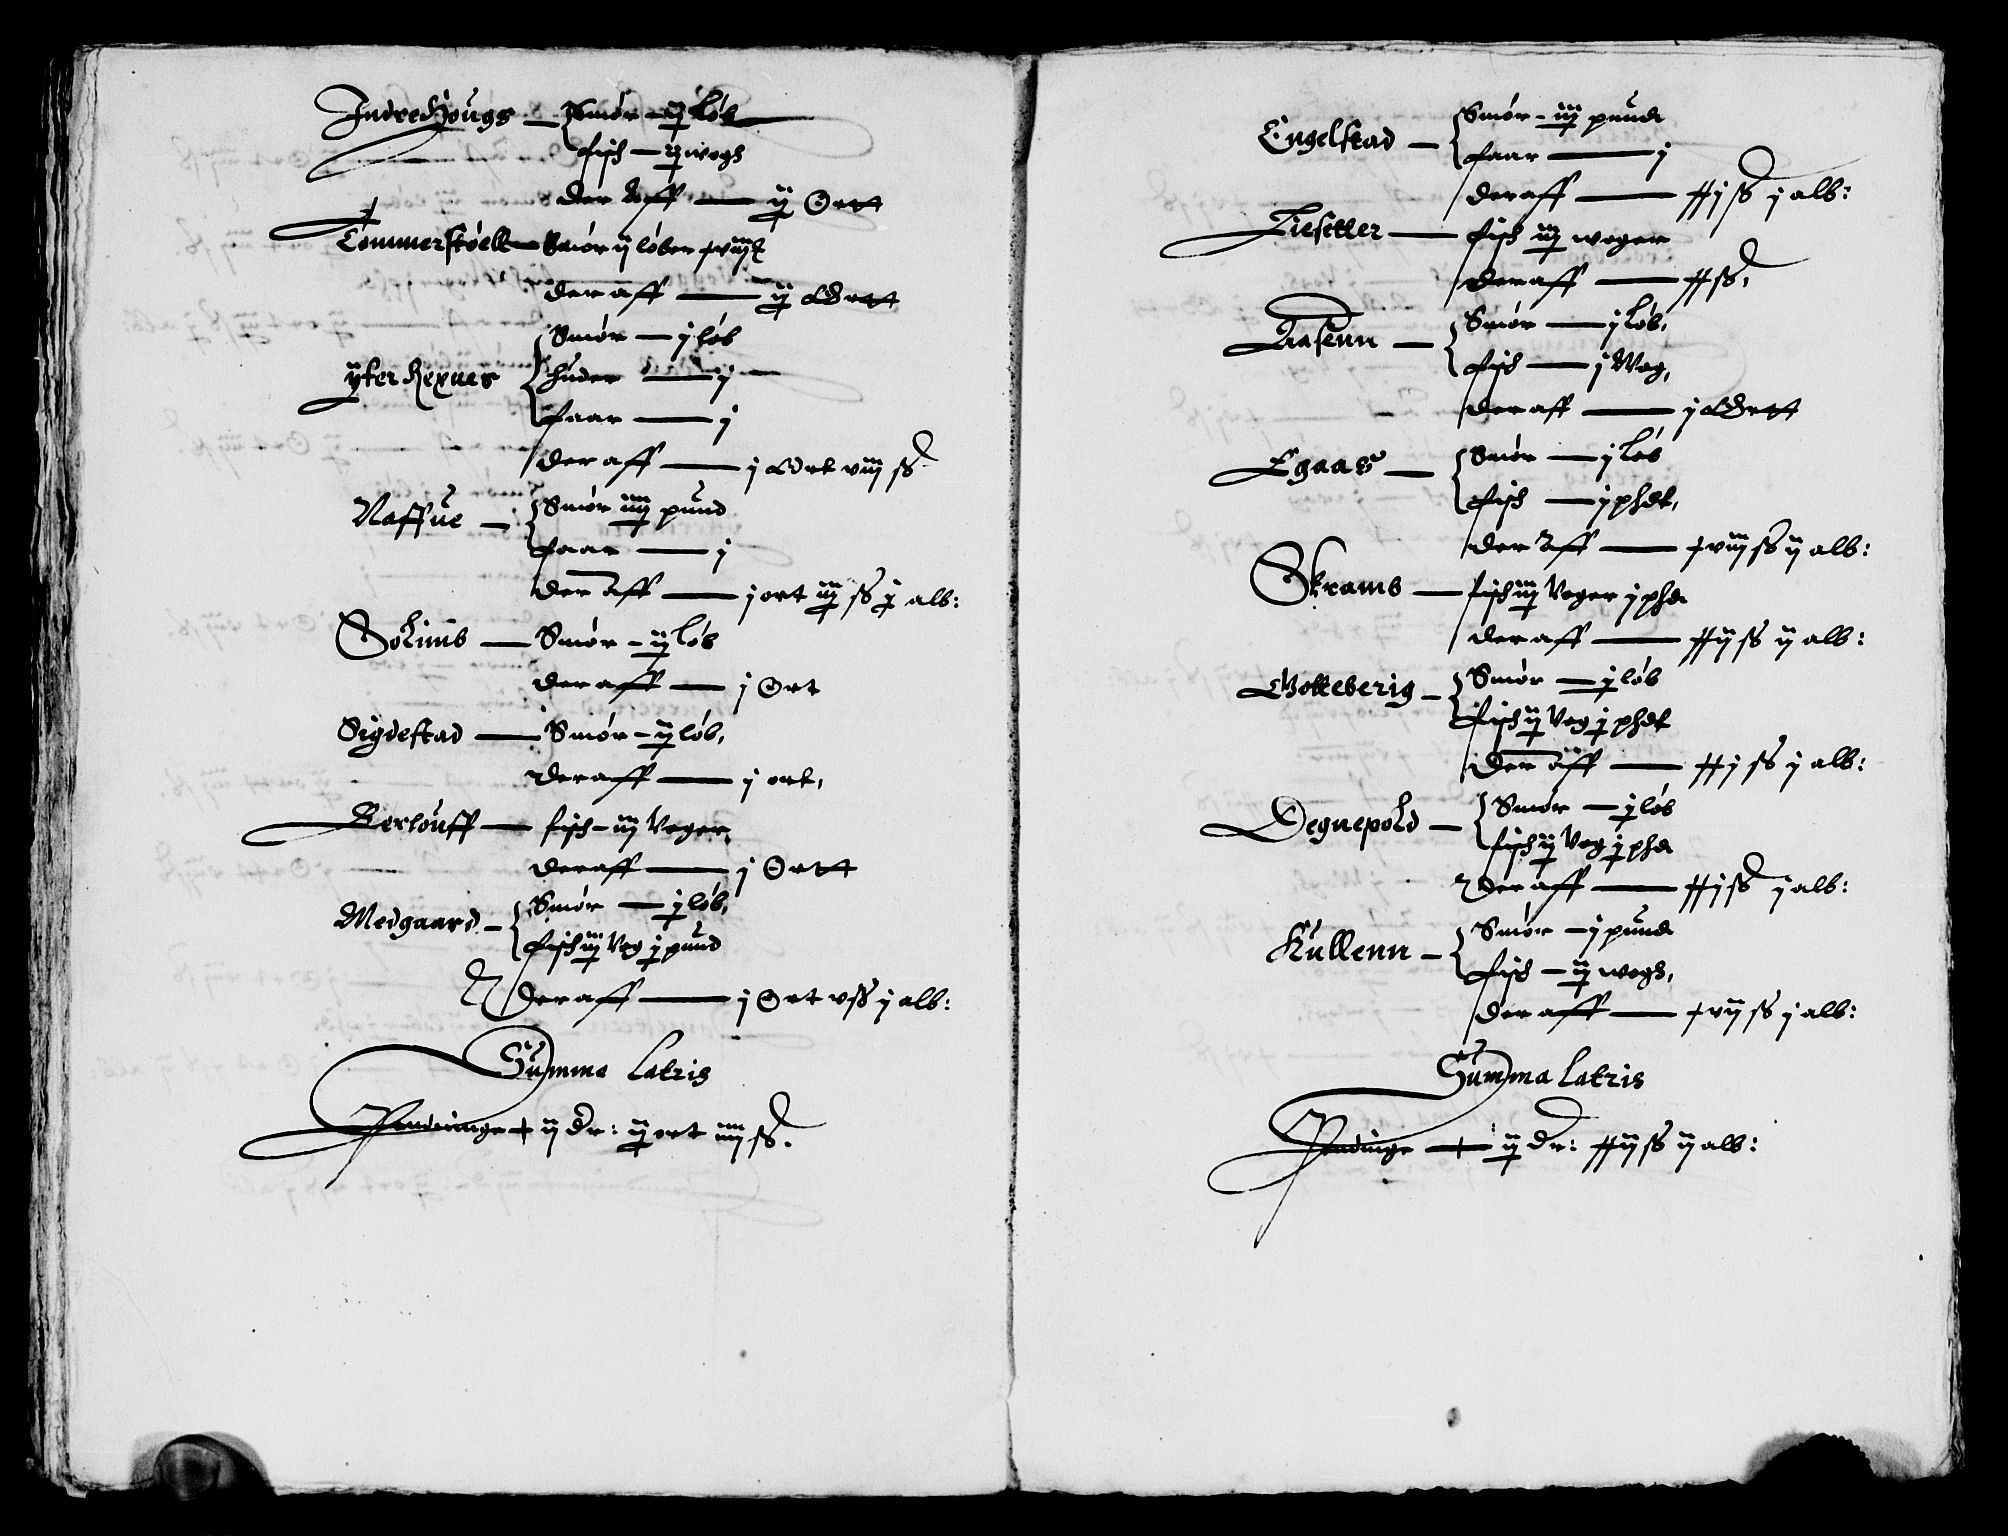 Indre Hougs — Smør — ij løb
fisch — ij wogh
der aff — ij Ortt
Tommerstoell — Smør ij løber
der aff — ij Ortt
Smør — j løb
ÿter Hexnes huder — ij
faar — j
der aff — j Ort viij ß
Naffue — Smør iiij pund
faar — j
der aff — j ort iij ß j alb:
Solimb — Smør — ij løb
der aff — j Ort
Sigdestad — Smør — ij løb,
deraff — j ort,
Berlouff — fisch — iij Voger,
deraff — j Ortt
Medgaard — Smør — j løb,
fisch iij Vog j pund
deraff — j Ort v ß j alb:
Summa Latris
Pendinge + ij dr: ij ort iiij ß.
Engelstad — Smør — iij pund
faar — j
deraff — xxj ß j alb:
Liesetter — fisch iij woger
deraff — xx ß,
Aasenn — Smør — j løb,
fisch — j Wog,
der aff — j Ortt
Egaas — Smør — j løb
fisch — j phdt,
der aff — xviij ß ij alb:
Skramb — fisch iij Voger j phd
der aff — xxij ß ij alb:
Gotteberig — Smør — j løb
fisch ij Vog j phdt
der aff — xxj ß j alb:
Degnepold — Smør — j løb
fisch ij Vog j phd
der aff — xxj ß j alb:
Kullenn — Smør — j pund
fisch — ij wogh,
der aff — xvij ß j alb:
Summa Latris
Pendinge — + ij dr: xxij ß ij alb: